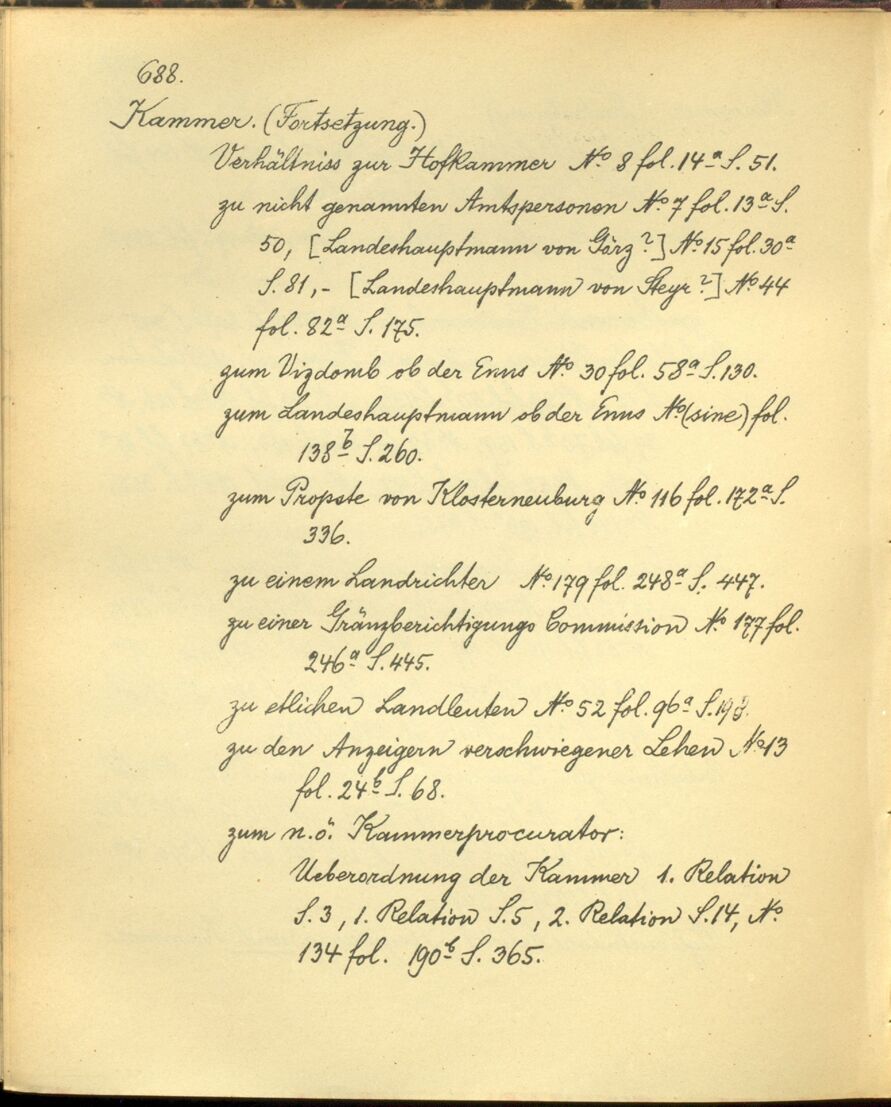 688.
Kammer. (Fortsetzung.)
Verhältniss zur Hofkammer No 8 fol. 14a S. 51.
zu nicht genannten Amtspersonen No 7 fol. 13a S.
50, [Landeshauptmann von Görz?] No 15 fol. 30a
S. 81,- [Landeshauptmann von Steyr?] No 44
fol. 82a S. 175.
zum Vizdomb ob der Enns No 30 fol. 58a S. 130.
zum Landeshauptmann ob der Enns No (sine) fol.
138b S. 260.
zum Propste von Klosterneuburg No 116 fol. 172a S.
336.
zu einem Landrichter No 179 fol. 248a S. 447.
zu einer Gränzberichtigungs Commission No 177 fol.
246a S. 445.
zu etlichen Landleuten No 52 fol. 96a S.
zu den Anzeigern verschwiegener Lehen No 13
fol. 24b S. 68.
zum n.ö. Kammerprocurator:
Ueberordnung der Kammer 1. Relation
S. 3, 1. Relation S. 5, 2. Relation S. 14, No
134 fol. 190b S. 365.